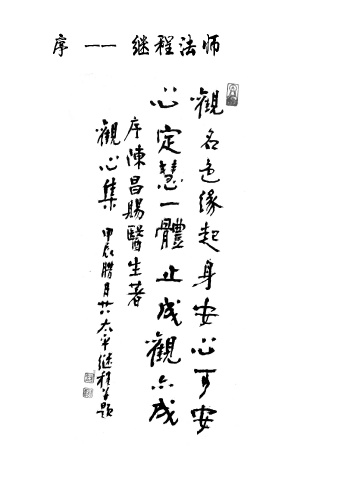 序 —— 继程法师
觀名色緣起身安心可安
心定慧一體止成觀亦成
序陳昌賜醫生著
觀心集 甲辰腊月廿六太平继程合題